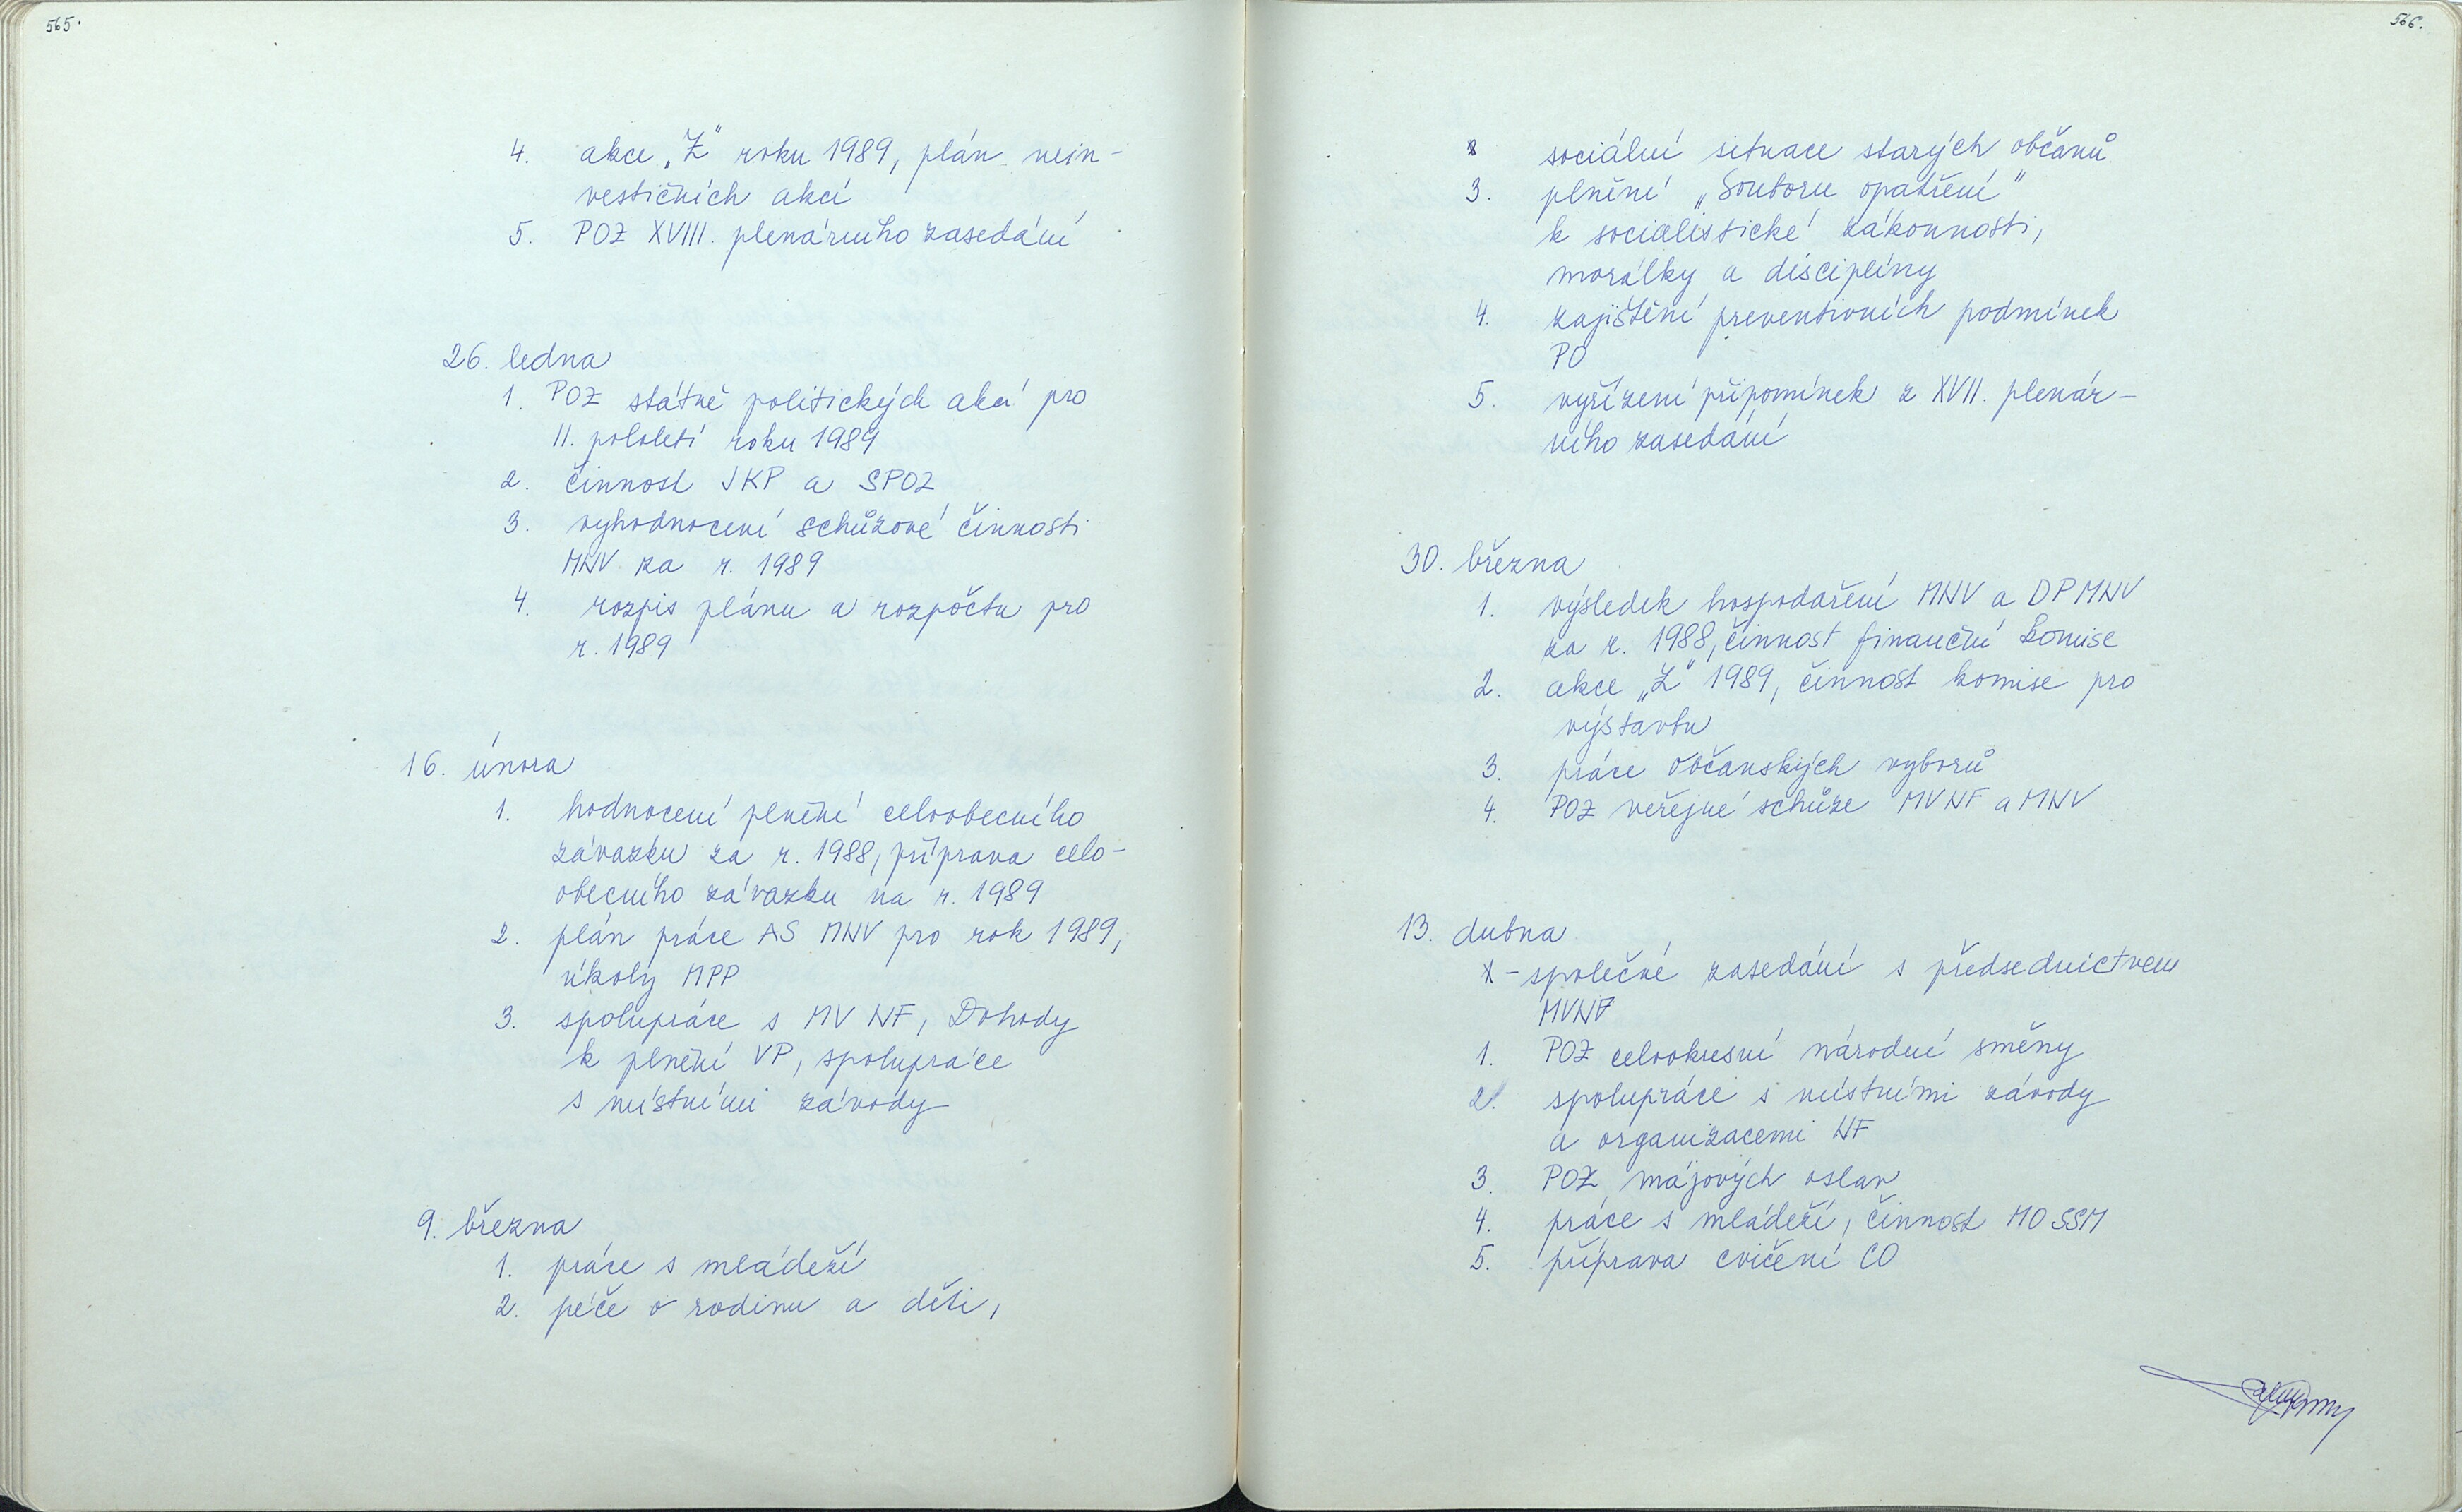 565.
4. akce „Z“ roku 1989, plán nein-
vestičních akcí
5. POZ XVIII. plenárního zasedání
26. ledna
1. POZ státně politických akcí pro
II. pololetí roku 1989
2. činnost JKP a SPOZ
3. vyhodnocení schůzové činnosti
MNV za r. 1989
4. rozpis plánu a rozpočtu pro
r. 1989
16. února
1. hodnocení plnění celoobecního
závazku za r. 1988, příprava celo-
obecního závazku na r. 1989
2. plán práce AS MNV pro rok 1989,
úkoly MPP
3. spolupráce s MV NF, Dohody
k plnění VP, spolupráce
s místními závody
9. března
1. práce s mládeží
2. péče o rodinu a děti,
566.
sociální situace starých občanů
3. plnění „Souboru opatření“
k socialistické zákonnosti,
morálky a disciplíny
4. zajištění preventivních podmínek
PO
5. vyřízení připomínek z XVII. plenár-
ního zasedání
30. března
1. výsledek hospodaření MNV a DPMNV
za r. 1988, činnost finanční komise
2. akce „Z“ 1989, činnost komise pro
výstavbu
3. práce občanských výborů
4. POZ veřejné schůze MVNF a MNV
13. dubna
- společné zasedání s předsednictvem
MVNF
1. POZ celookresní národní směny
2. spolupráce s místními závody
a organizacemi NF
3. POZ májových oslav
4. práce s mládeží, činnost MO SSM
5. příprava cvičení CO